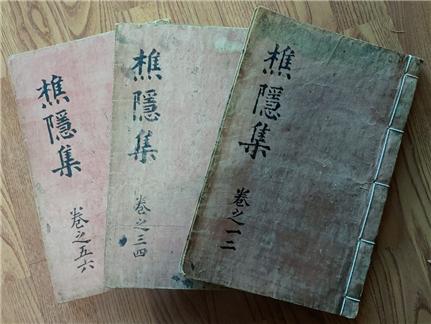 樵隱集
卷之五六
樵隱集
卷之三四
樵隱集
卷之一二